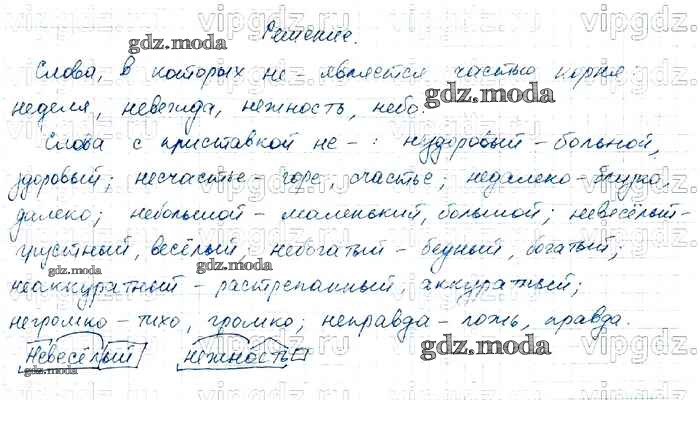 Решение.
Слова, в которых не- является частью корня:
неделя, невежда, нежность, небо.
Слова с приставкой не- : нездоровый - больной,
здоровый; несчастье - горе, счастье; недалеко - близко,
далеко; небольшой - маленький, большой; невесёлый -
грустный, весёлый; небогатый - бедный, богатый;
неаккуратный - растрепанный, аккуратный;
негромко - тихо, громко; неправда - ложь, правда.
невесёлый нежность
gdz.moda
gdz.moda
gdz.moda
gdz.moda
gdz.moda
gdz.moda
vipgdz.ru